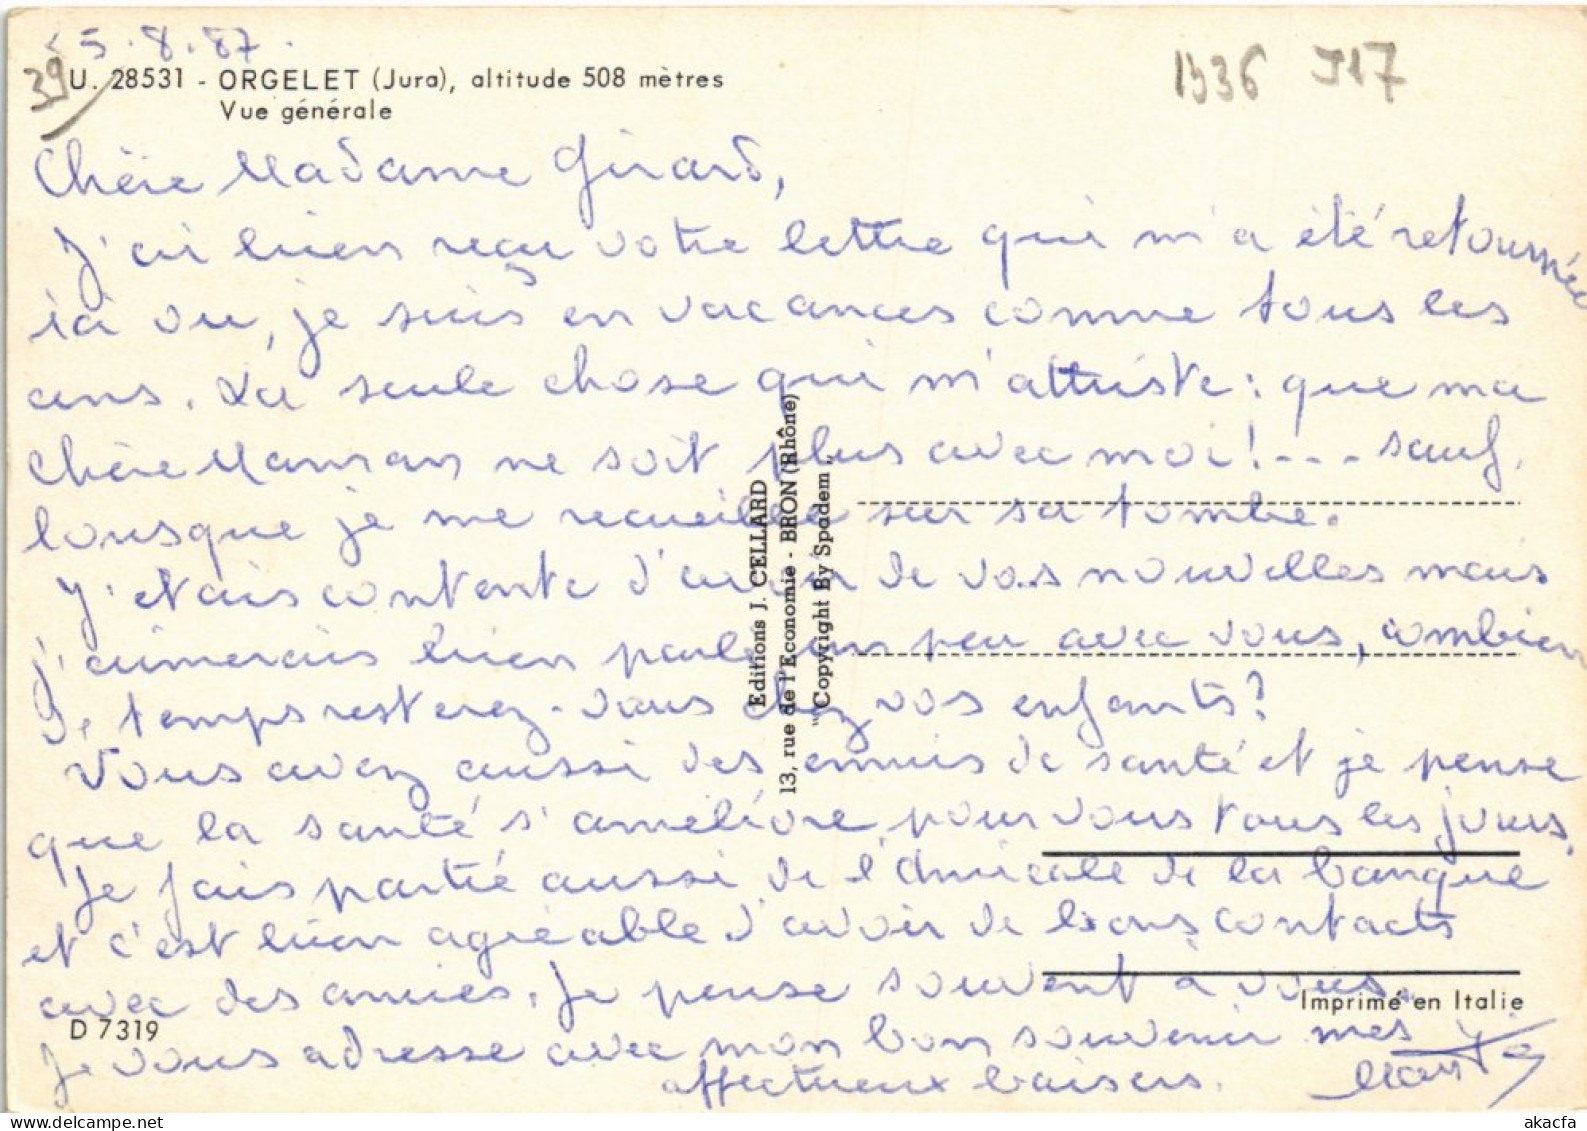 5.8.87.
39
U. 28531 - ORGELET (Jura), altitude 508 mètres
Vue générale
1336 J17
Chère Madame Girard,
J'ai bien reçu votre lettre qui m'a été retournée
ici ou, je suis en vacances comme tous les
ans. La seule chose qui m'attriste : que ma
chère Maman ne soit plus avec moi !--- sauf
lorsque je me recueille sur sa tombe.
J'etais contente d'avoir de vos nouvelles mais
j'aimerais bien parler un peu avec vous, combien
De temps resterez-vous chez vos enfants ?
Vous avez aussi des ennuis de santé et je pense
que la santé s'améliore pour vous tous les jours.
Je fais partie aussi de l'Amicale de la banque
et c'est bien agréable d'avoir de bons contacts
avec des amies. Je pense souvent à vous.
Je vous adresse avec mon bon souvenir mes
affectueux baisers.
Editions J. CELLARD
13, rue de l'Economie - BRON (Rhône)
"Copyright By Spadem"
Imprimé en Italie
D 7319
www.delcampe.net
akacfa